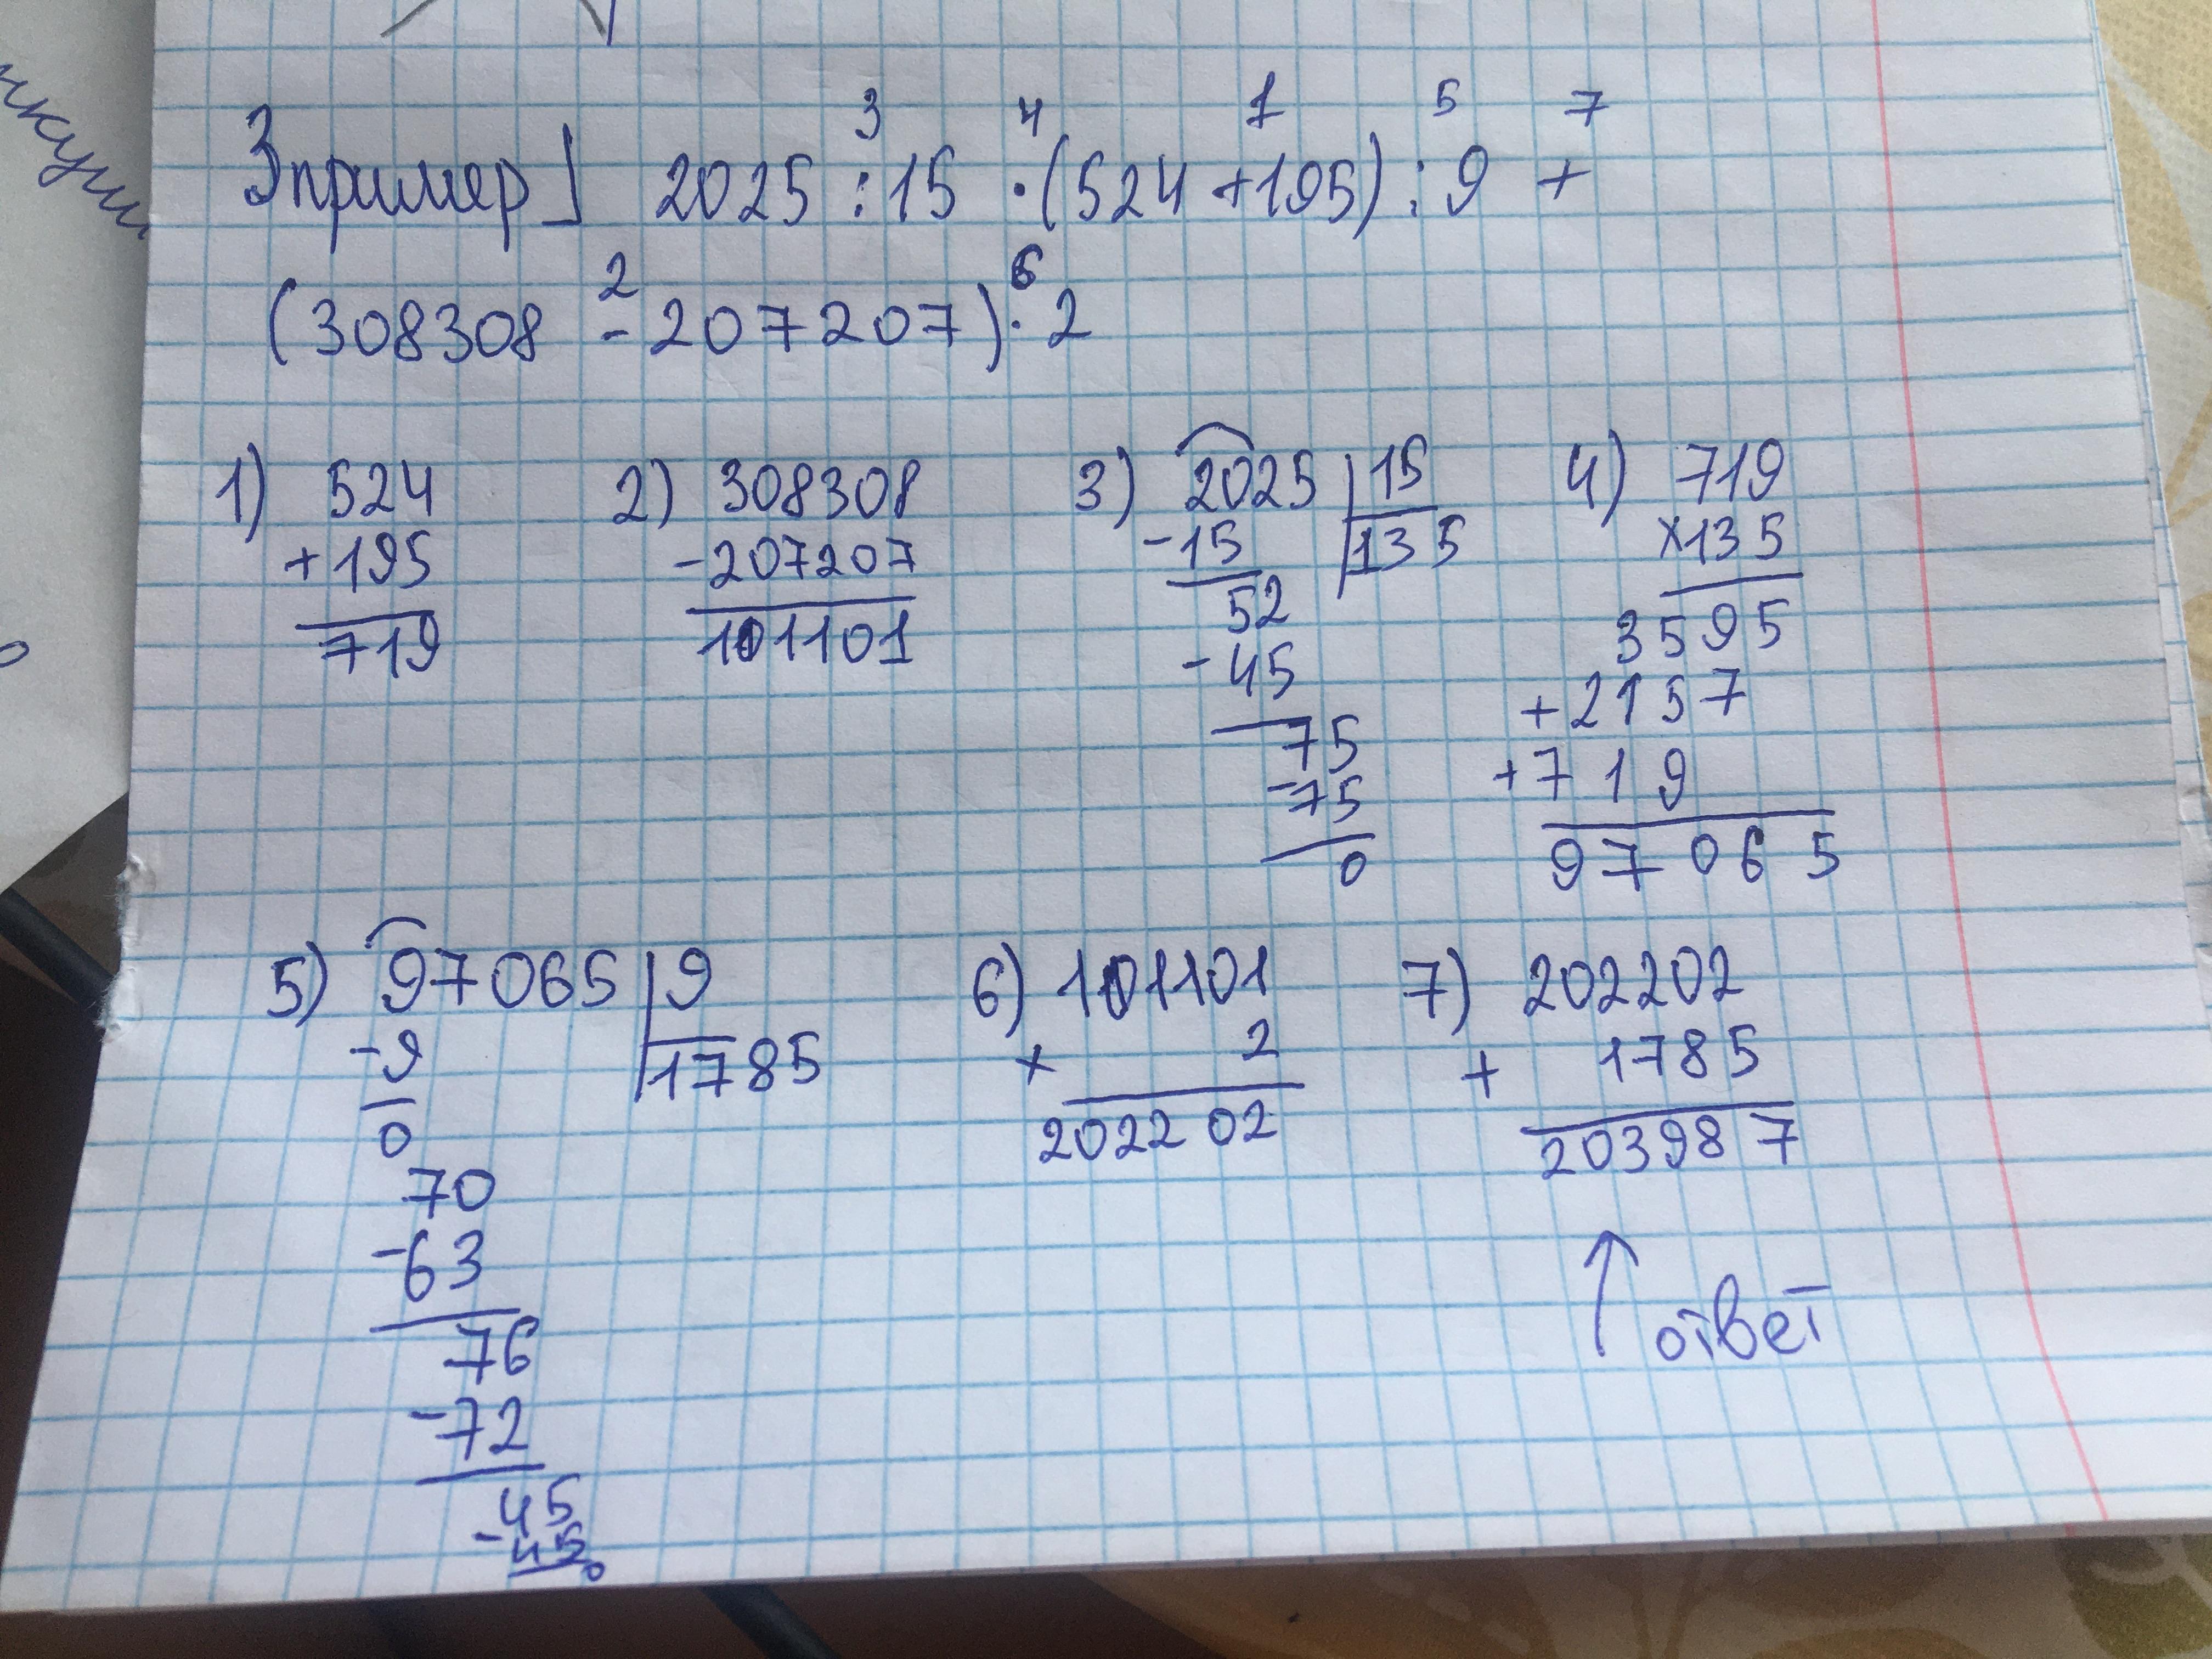 3 4 1 5 7
3 пример] 2025 : 15 · (524 + 195) : 9 +
2 6
(308308 - 207207) · 2
1) 524 2) 308308 3) 2025 | 15 4) 719
+195 -207207 -15 135 ×135
719 101101 52 3595
-45 +2157
75 +719
-75 97065
0
5) 97065 | 9 6) 101101 7) 202202
-9 1785 × 2 + 1785
0 202202 203987
70
-63
76 ↑ ответ
-72
45
-45
0